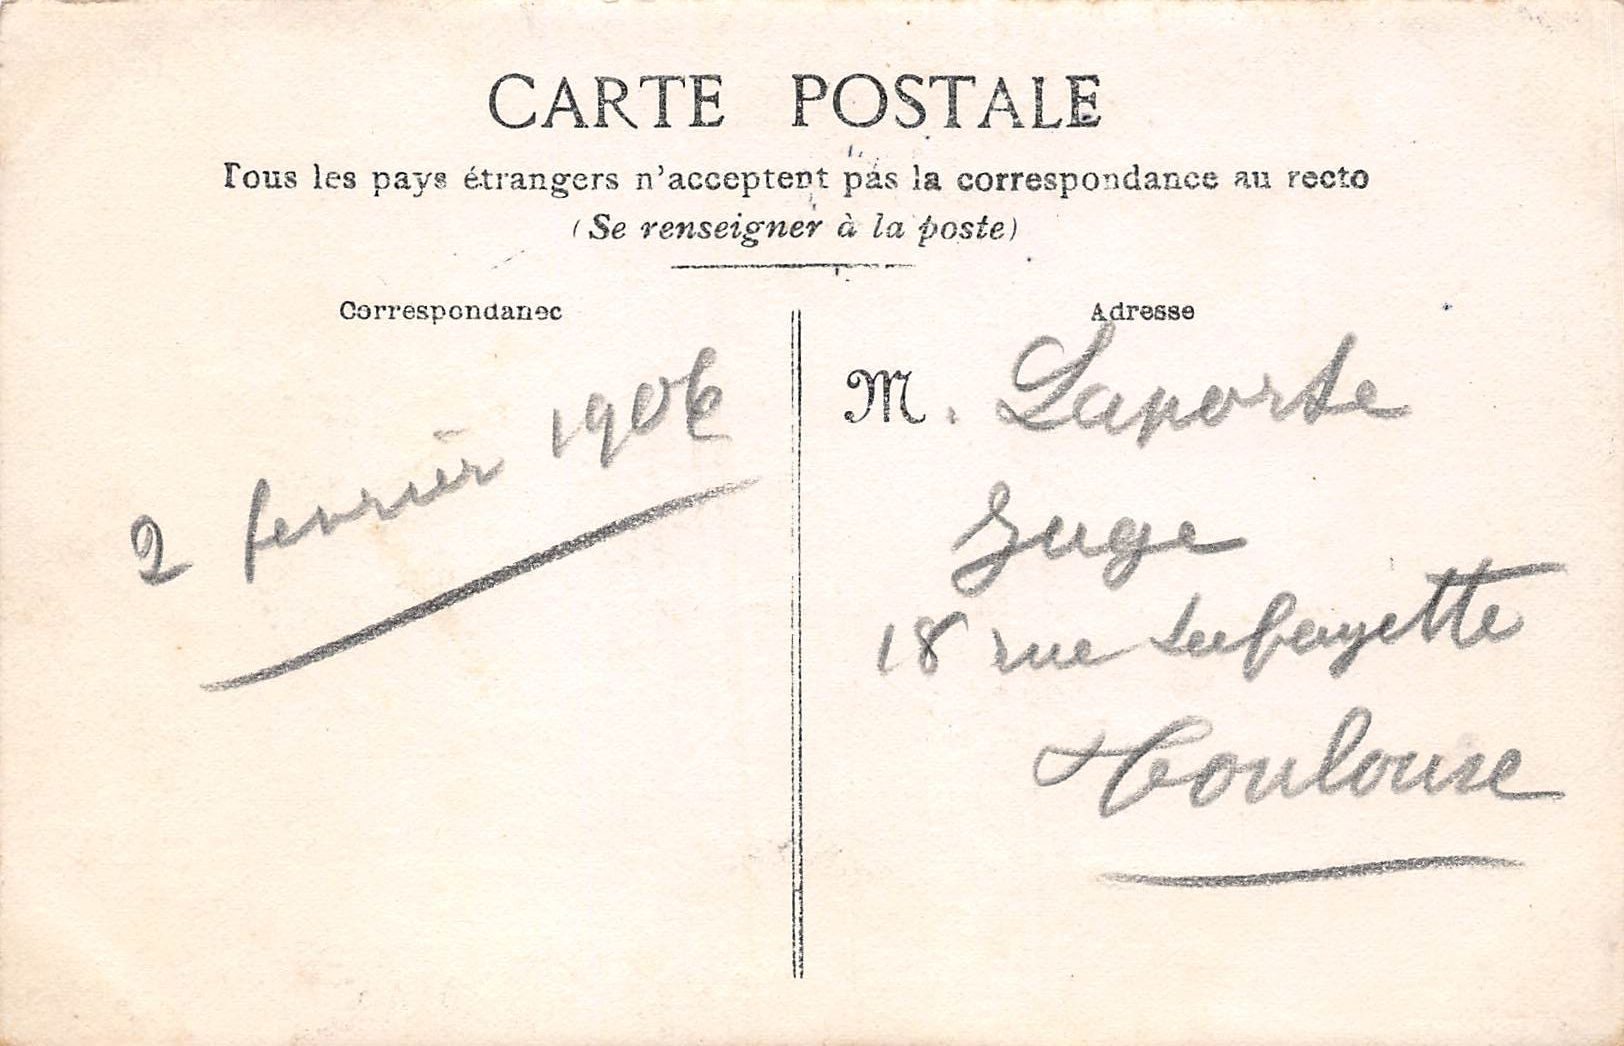 CARTE POSTALE
Tous les pays étrangers n'acceptent pas la correspondance au recto
(Se renseigner à la poste)
Correspondance
Adresse
2 fevrier 1906
M. Laporte
Juge
18 rue Lafayette
Toulouse